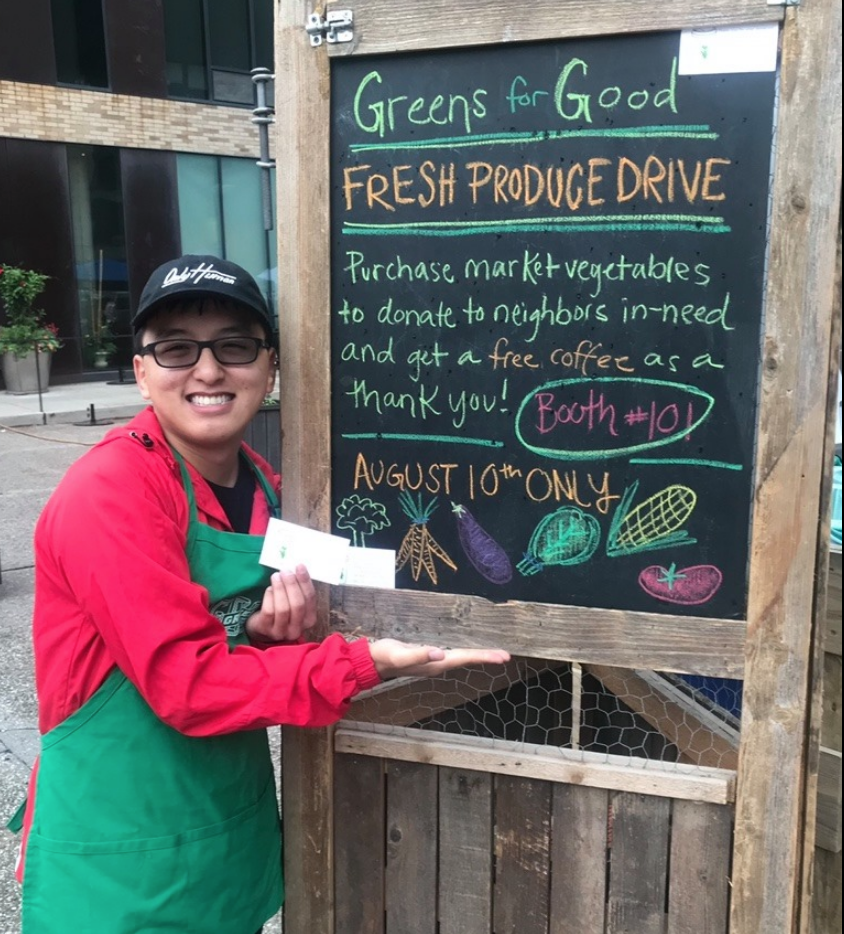 Greens for Good
FRESH PRODUCE DRIVE
Purchase market vegetables
to donate to neighbors in-need
and get a free coffee as a
thank you!
Booth #101
AUGUST 10th ONLY
Only Human